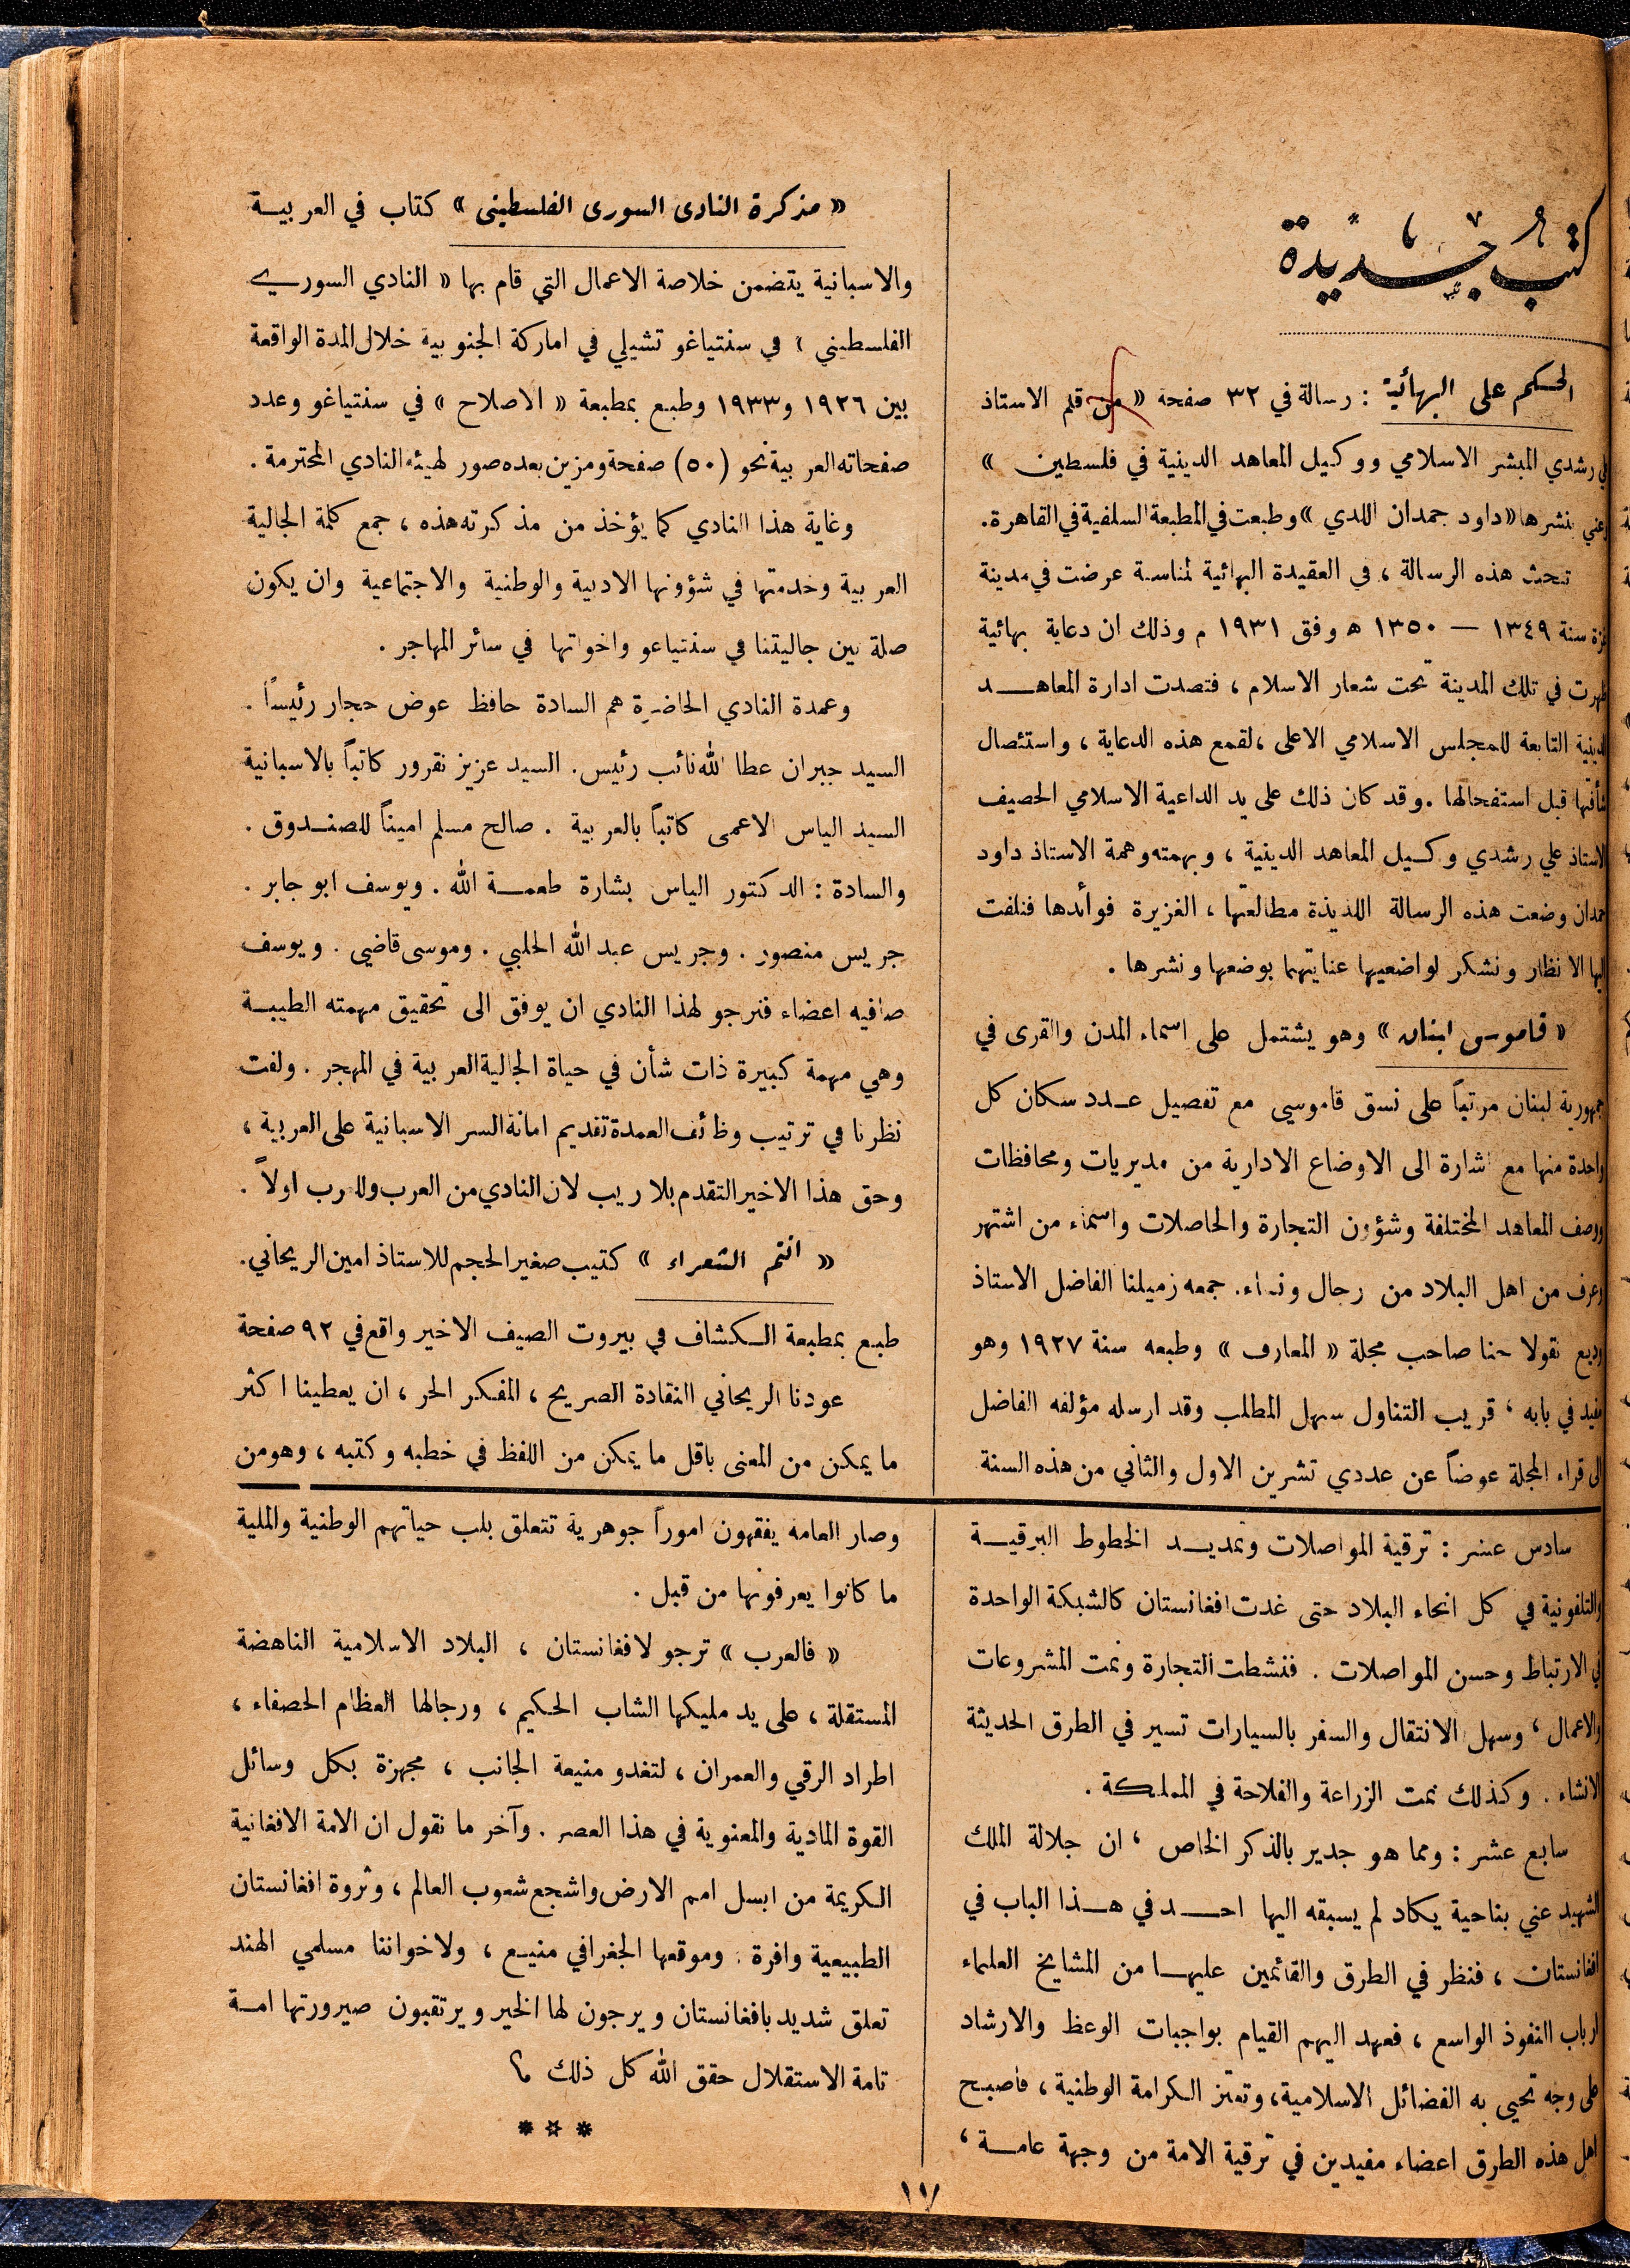 كتب جديدة
الحكم على البهائية : رسالة في ٣٢ صفحة « من قلم الاستاذ
علي رشدي المبشر الاسلامي ووكيل المعاهد الدينية في فلسطين »
وعني بنشرها « داود حمدان اللدي » وطبعت في المطبعة السلفية في القاهرة.
تبحث هذه الرسالة ، في العقيدة البهائية لمناسبة عرضت في مدينة
غزة سنة ١٣٤٩ — ١٣٥٠ ه وفق ١٩٣١ م وذلك ان دعاية بهائية
ظهرت في تلك المدينة تحت شعار الاسلام ، فتصدت ادارة المعاهد
الدينية التابعة للمجلس الاسلامي الاعلى ، لقمع هذه الدعاية ، واستئصال
شأفتها قبل استفحالها . وقد كان ذلك على يد الداعية الاسلامي الحصيف
الاستاذ علي رشدي وكيل المعاهد الدينية ، وبهمته وهمة الاستاذ داود
حمدان وضعت هذه الرسالة اللذيذة مطالعتها ، الغزيرة فوائدها فنلفت
اليها الانظار ونشكر لواضعيها عنايتهما بوضعها ونشرها .
« قاموس لبنان » وهو يشتمل على اسماء المدن والقرى في
جمهورية لبنان مرتباً على نسق قاموسي مع تفصيل عدد سكان كل
واحدة منها مع اشارة الى الاوضاع الادارية من مديريات ومحافظات
ووصف المعاهد المختلفة وشؤون التجارة والحاصلات واسماء من اشتهر
وعرف من اهل البلاد من رجال ونساء. جمعه زميلنا الفاضل الاستاذ
وديع نقولا حنا صاحب مجلة « المعارف » وطبعه سنة ١٩٢٧ وهو
مفيد في بابه ، قريب التناول سهل المطلب وقد ارسله مؤلفه الفاضل
الى قراء المجلة عوضاً عن عددي تشرين الاول والثاني من هذه السنة
« مذكرة النادى السورى الفلسطينى » كتاب في العربية
والاسبانية يتضمن خلاصة الاعمال التي قام بها « النادي السوري
الفلسطيني » في سنتياغو تشيلي في اماركة الجنوبية خلال المدة الواقعة
بين ١٩٢٦ و١٩٣٣ وطبع بمطبعة « الاصلاح » في سنتياغو وعدد
صفحاته العربية نحو (٥٠) صفحة ومزين بعده صور لهيئة النادي المحترمة .
وغاية هذا النادي كما يؤخذ من مذكرته هذه ، جمع كلمة الجالية
العربية وخدمتها في شؤونها الادبية والوطنية والاجتماعية وان يكون
صلة بين جاليتنا في سنتياغو واخواتها في سائر المهاجر .
وعمدة النادي الحاضرة هم السادة حافظ عوض حجار رئيساً .
السيد جبران عطا الله نائب رئيس . السيد عزيز نقرور كاتباً بالاسبانية
السيد الياس الاعمى كاتباً بالعربية . صالح مسلم اميناً للصندوق .
والسادة : الدكتور الياس بشارة طعمة الله . ويوسف ابو جابر .
جريس منصور . وجريس عبد الله الحلبي . وموسى قاضي . ويوسف
صافيه اعضاء فنرجو لهذا النادي ان يوفق الى تحقيق مهمته الطيبة
وهي مهمة كبيرة ذات شأن في حياة الجالية العربية في المهجر . ولفت
نظرنا في ترتيب وظائف العمدة تقديم امانة السر الاسبانية على العربية ،
وحق هذا الاخير التقدم بلا ريب لان النادي من العرب وللعرب اولاً .
« انتم الشعراء » كتيب صغير الحجم للاستاذ امين الريحاني.
طبع بمطبعة الكشاف في بيروت الصيف الاخير واقع في ٩٢ صفحة
عودنا الريحاني النقادة الصريح ، المفكر الحر ، ان يعطينا اكثر
ما يمكن من المعنى باقل ما يمكن من اللفظ في خطبه وكتبه ، وهو من
سادس عشر : ترقية المواصلات وتمديد الخطوط البرقية
والتلفونية في كل انحاء البلاد حتى غدت افغانستان كالشبكة الواحدة
في الارتباط وحسن المواصلات . فنشطت التجارة ونمت المشروعات
والاعمال ، وسهل الانتقال والسفر بالسيارات تسير في الطرق الحديثة
الانشاء . وكذلك نمت الزراعة والفلاحة في المملكة .
سابع عشر : ومما هو جدير بالذكر الخاص ، ان جلالة الملك
الشهيد عني بناحية يكاد لم يسبقه اليها احد في هذا الباب في
افغانستان ، فنظر في الطرق والقائمين عليها من المشايخ العلماء
ارباب النفوذ الواسع ، فعهد اليهم القيام بواجبات الوعظ والارشاد
على وجه تحيى به الفضائل الاسلامية، وتعتز الكرامة الوطنية ، فاصبح
اهل هذه الطرق اعضاء مفيدين في ترقية الامة من وجهة عامة ،
وصار العامة يفقهون اموراً جوهرية تتعلق بلب حياتهم الوطنية والملية
ما كانوا يعرفونها من قبل .
« فالعرب » ترجو لافغانستان ، البلاد الاسلامية الناهضة
المستقلة ، على يد مليكها الشاب الحكيم ، ورجالها العظام الحصفاء ،
اطراد الرقي والعمران ، لتغدو منيعة الجانب ، مجهزة بكل وسائل
القوة المادية والمعنوية في هذا العصر . وآخر ما نقول ان الامة الافغانية
الكريمة من ابسل امم الارض واشجع شعوب العالم ، وثروة افغانستان
الطبيعية وافرة . وموقعها الجغرافي منيع ، ولاخواننا مسلمي الهند
تعلق شديد بافغانستان ويرجون لها الخير ويرتقبون صيرورتها امة
تامة الاستقلال حقق الله كل ذلك ؟
* * *